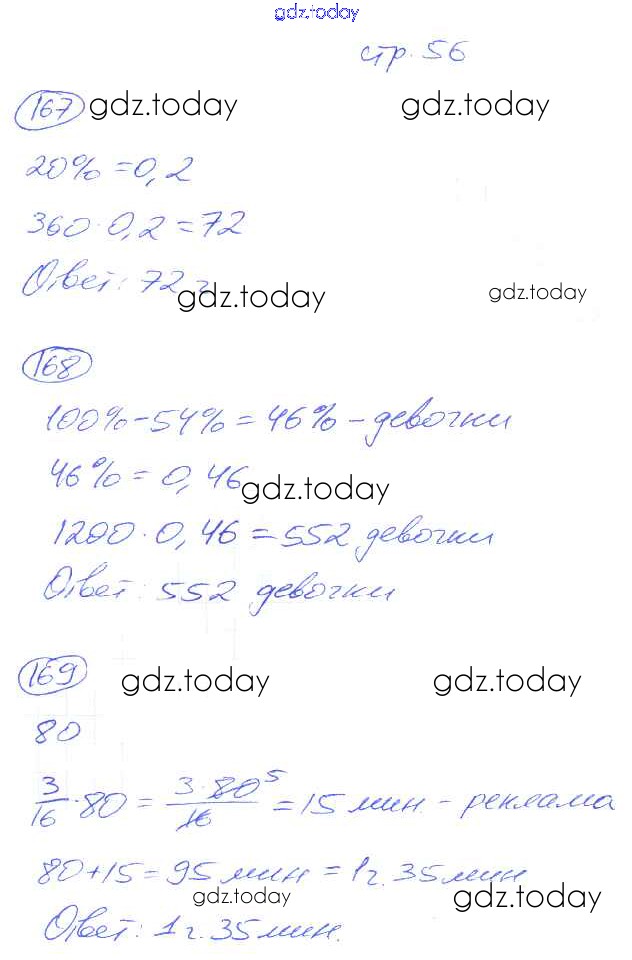 gdz.today
стр. 56
167 gdz.today gdz.today
20% = 0,2
360 · 0,2 = 72
Ответ: 72 г
gdz.today gdz.today
168
100% - 54% = 46% - девочки
46% = 0,46
gdz.today
1200 · 0,46 = 552 девочки
Ответ: 552 девочки
169 gdz.today gdz.today
80
3/16 · 80 = 3·80⁵/16 = 15 мин. - реклама
80 + 15 = 95 мин = 1 ч. 35 мин
gdz.today gdz.today
Ответ: 1 ч. 35 мин.